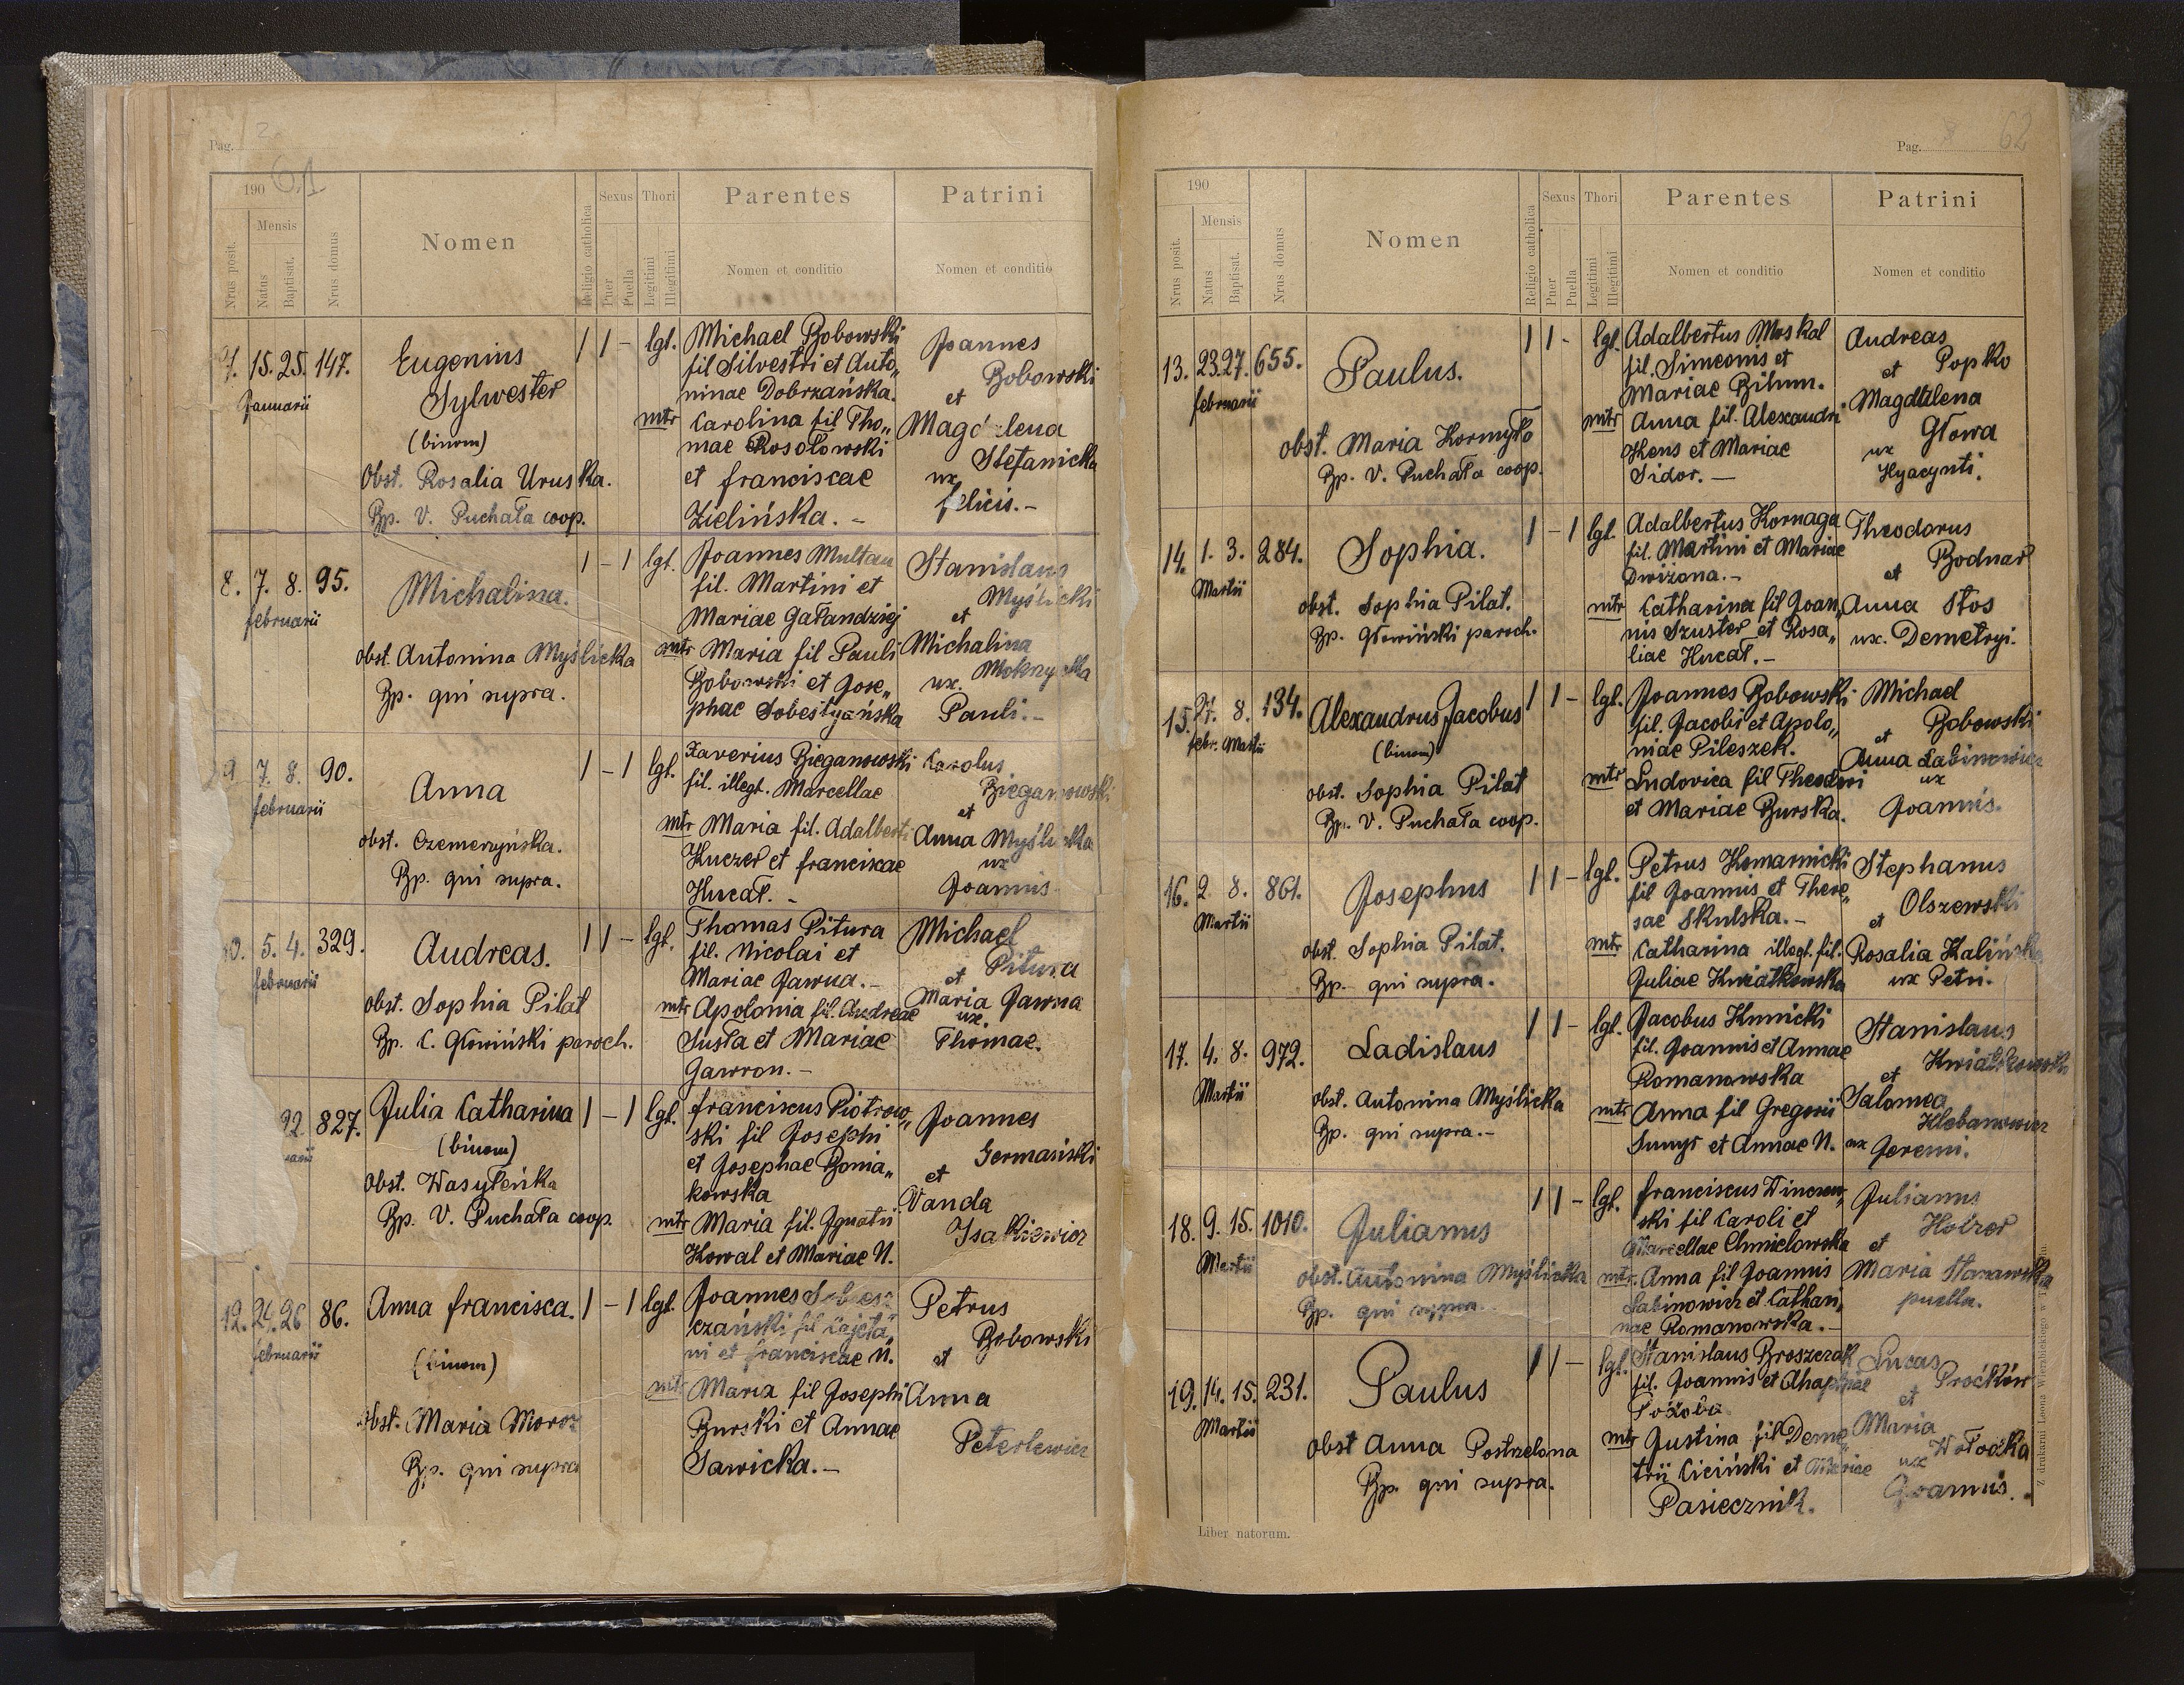 Pag. 2
61
190
Nrus posit.
Mensis
Natus
Baptisat.
Nrus domus
Nomen
Religio catholica
Sexus
Puer
Puella
Thori
Legitimi
Illegitimi
Parentes
Nomen et conditio
Patrini
Nomen et conditio
7. 15. 25. 147.
Januarii
Eugenius
Sylwester
(binom)
Obst. Rosalia Uruska.
Bp. V. Puchała coop.
1 1 - lgt.
Michael Bobowski
fil Silvestri et Anto„
ninae Dobrzańska.
mtr Carolina fil Tho„
mae Rosołowski
et Franciscae
Zielińska. -
Joannes
Bobowski
et
Magdalena
Stefanicka
ux.
Felicis. -
8. 7. 8. 95.
Februarii
Michalina.
obst. Antonina Myślicka
Bp. qui supra.
1 - 1 lgt.
Joannes Multan
fil. Martini et
Mariae Gałandziej
mtr Maria fil Pauli
Bobowski et Jose„
phae Sobestyańska
Stanislaus
Myślicki
et
Michalina
ux.
Pauli. -
9. 7. 8. 90.
Februarii
Anna
obst. Czemeryńska.
Bp. qui supra.
1 - 1 lgt.
Xaverius Bieganowski
fil. illegt. Marcellae
mtr Maria fil. Adalberti
Kuczer et Franciscae
Hucał. -
Carolus
Bieganowski
et
Anna Myślicka
ux
Joannis
10. 5. 4. 329.
Februarii
Andreas.
obst. Sophia Pilat
Bp. C. Głowiński paroch.
1 1 - lgt.
Thomas Pitura
fil. Nicolai et
Mariae Jawna. -
mtr Apolonia fil. Andreae
Susła et Mariae
Gawron. -
Michael
Pitura
et
Maria Jawna
ux.
Thomae.
22 827.
Julia Catharina
(binom)
Obst. Wasyleńka
Bp. V. Puchała coop.
1 - 1 lgt.
Franciscus Piotrow„
ski fil Josephi
et Josephae Bonia„
kowska
mtr Maria fil. Ignatii
Kowal et Mariae N.
Joannes
Germasiński
et
Wanda
Isakiewicz
12. 24. 26 86.
Februarii
Anna Francisca.
(binom)
obst. Maria Moroz
Bp. qui supra
1 - 1 lgt.
Joannes Sobesz
czański fil Cajeta„
ni et Franciscae N.
mtr Maria fil Josephi
Burski et Annae
Sawicka. -
Petrus
Bobowski
et
Anna
Peterlewicz
Pag.
62
190
Nrus posit.
Mensis
Natus
Baptisat.
Nrus domus
Nomen
Religio catholica
Sexus
Puer
Puella
Thori
Legitimi
Illegitimi
Parentes
Nomen et conditio
Patrini
Nomen et conditio
13. 23. 27. 655.
Februarii
Paulus.
obst. Maria Kormyło
Bp. V. Puchała coop.
1 1 - lgt.
Adalbertus Moskal
fil. Simeonis et
Mariae Bihun.
mtr Anna fil. Alexandri
Kens et Mariae
Sidor. -
Andreas
Popko
et
Magdalena
Głowa
ux
Hyacynti.
14. 1. 3. 284.
Martii
Sophia.
obst. Sophia Pilat.
Bp. Głowiński paroch.
1 - 1 lgt.
Adalbertus Kornaga
fil. Martini et Mariae
Dwiżona. -
mtr Catharina fil Joan„
nis Szuster et Rosa„
liae Hucał. -
Theodorus
Bodnar
et
Anna Stos
ux. Demetryi.
15. 27. 8. 134.
febr. Martii
Alexandrus Jacobus
(binom)
obst. Sophia Pilat
Bp. V. Puchała coop.
1 1 - lgt.
Joannes Bobowski
fil. Jacobi et Apolo„
niae Pileszek.
mtr Ludovica fil Theodori
et Mariae Burska.
Michael
Bobowski
et
Anna Labinowicz
ux
Joannis.
16. 2 8. 861.
Martii
Josephus
obst. Sophia Pilat.
Bp. qui supra.
1 1 - lgt.
Petrus Komarnicki
fil Joannis et There„
sae Skulska. -
mtr Catharina illegt. fil.
Juliae Kwiatkowska
Stephanus
Olszewski
et
Rosalia Kalińska
ux Petri.
17. 4. 8. 972.
Martii
Ladislaus
obst. Antonina Myślicka
Bp. qui supra. -
1 1 - lgt.
Jacobus Kunicki
fil. Joannis et Annae
Romanowska
mtr Anna fil Gregorii
et Annae N.
Stanislaus
Kwiatkowski
et
Salomea
Klebanowicz
ux Jeremi.
18. 9. 15. 1010.
Martii
Julianus
obst. Antonina Myślicka
Bp. qui supra.
1 1 - lgt.
Franciscus Wincew„
ski fil Caroli et
Marcellae Chmielowska
mtr. Anna fil Joannis
Labinowicz et Cathari„
nae Romanowska. -
Julianus
et
Maria
puella.
19. 14. 15. 231.
Martii
Paulus
obst Anna Postrzelona
Bp. qui supra.
1 1 - lgt.
Stanislaus Broszczak
fil. Joannis et Ahaphiae
mtr Justina fil Deme„
trii Ciciński et Mariae
Pasiecznik.
Lucas
Proćków
et
Maria
Wołoćka
ux
Joannis.
Liber natorum.
Z drukarni Leona Wierzbickiego w